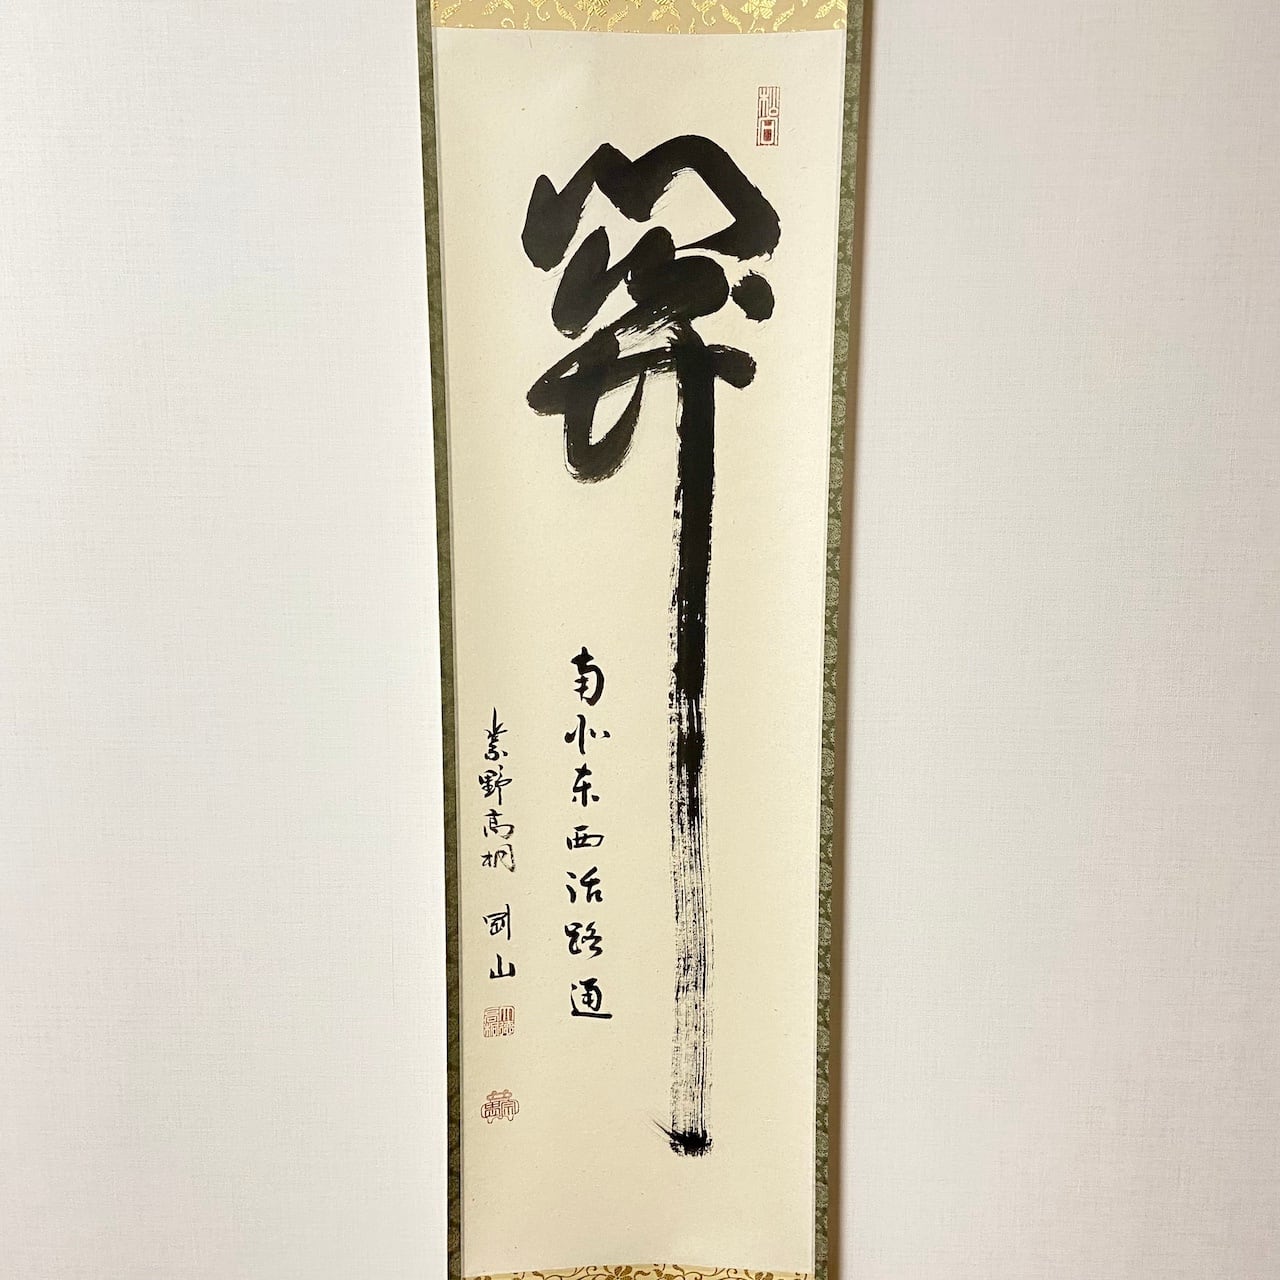 関
南北東西活路通
紫野高桐 剛山